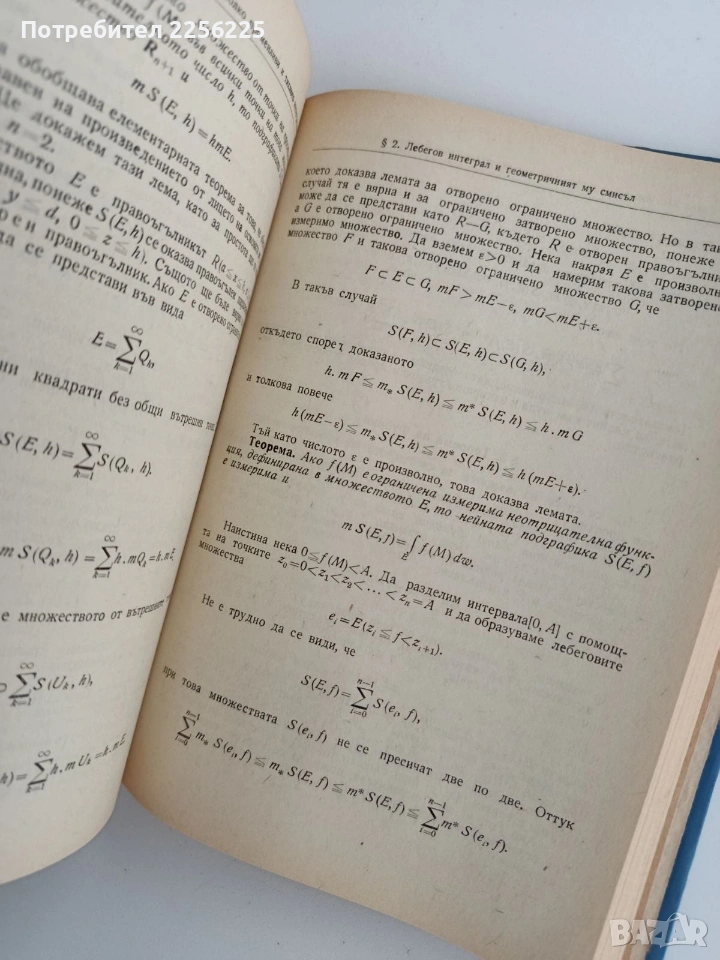 Потребител 2256592
f (M)
множество от точки на
във всички точки на това
число h, то подграфиката
R_{n+1} и
m S (E, h) = hmE.
обобщава елементарната теорема за това, че
равен на произведението от лицето на основата
Ще докажем тази лема, като за простота
n=2.
множеството E е правоъгълникът R(a≤x≤
понеже S(E, h) се оказва правоъгълен
y ≤ d, 0 ≤ z ≤ h). Същото ще бъде вярно
правоъгълник. Ако E е отворено
да се представи във вида
E = \sum_{k=1}^{∞} Q_k,
квадрати без общи вътрешни точки
S (E, h) = \sum_{k=1}^{∞} S(Q_k, h).
m S(Q_k, h) = \sum_{k=1}^{∞} h . mQ_k = h . m E,
е множеството от вътрешните
\sum_{k=1}^{∞} S(U_k, h),
h) = \sum_{k=1}^{∞} h . m U_k = h . m E
§ 2. Лебегов интеграл и геометричният му смисъл
което доказва лемата за отворено ограничено множество. Но в такъв
случай тя е вярна и за ограничено затворено множество, понеже
може да се представи като R—G, където R е отворен правоъгълник,
а G е отворено ограничено множество. Нека накрая E е произволно
измеримо множество. Да вземем ε>0 и да намерим такова затворено
множество F и такова отворено ограничено множество G, че
F⊂E⊂G, mF>mE−ε, mG<mE+ε.
В такъв случай
S(F, h)⊂S(E, h)⊂S(G, h),
откъдето според доказаното
h. m F ≦ m_* S(E, h) ≦ m* S(E, h) ≦ h . m G
и толкова повече
h (mE−ε) ≦ m_* S(E, h) ≦ m* S(E, h) ≦ h (mE+ε).
Тъй като числото ε е произволно, това доказва лемата.
Теорема. Ако f (M) е ограничена измерима неотрицателна функ-
ция, дефинирана в множеството E, то нейната подграфика S(E, f)
е измерима и
m S(E, f) = \int_E f (M) dw.
Наистина нека 0≦f(M)<A. Да разделим интервала[0, A] с помощ-
та на точките z_0=0<z_1<z_2<...<z_n=A и да образуваме лебеговите
множества
e_i=E(z_i≦f<z_{i+1}).
Не е трудно да се види, че
S(E, f) = \sum_{i=0}^{n−1} S(e_i, f),
при това множествата S(e_i, f) не се пресичат две по две. Оттук
\sum_{i=0}^{n−1} m_* S(e_i, f) ≦ m_* S(E, f) ≦ m* S(E, f) ≦ \sum_{i=0}^{n−1} m* S(e_i, f).
BAZAR